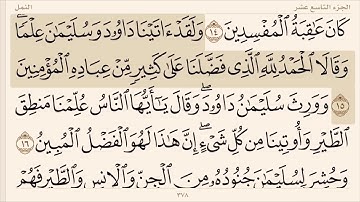 الجزء التاسع عشر
النمل
كَانَ عَٰقِبَةُ ٱلْمُفْسِدِينَ ١٤ وَلَقَدْ ءَاتَيْنَا دَاوُۥدَ وَسُلَيْمَٰنَ عِلْمًا ۖ
وَقَالَا ٱلْحَمْدُ لِلَّهِ ٱلَّذِى فَضَّلَنَا عَلَىٰ كَثِيرٍ مِّنْ عِبَادِهِ ٱلْمُؤْمِنِينَ
١٥ وَوَرِثَ سُلَيْمَٰنُ دَاوُۥدَ ۖ وَقَالَ يَٰٓأَيُّهَا ٱلنَّاسُ عُلِّمْنَا مَنطِقَ
ٱلطَّيْرِ وَأُوتِينَا مِن كُلِّ شَىْءٍ ۖ إِنَّ هَٰذَا لَهُوَ ٱلْفَضْلُ ٱلْمُبِينُ ١٦
وَحُشِرَ لِسُلَيْمَٰنَ جُنُودُهُۥ مِنَ ٱلْجِنِّ وَٱلْإِنسِ وَٱلطَّيْرِ فَهُمْ
٣٧٨